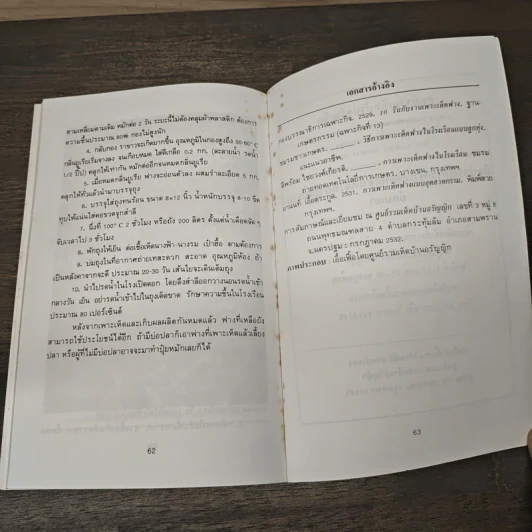 ตามเหลี่ยมตามเดิม หมักต่อ 2 วัน ระยะนี้ไม่ต้องคลุมผ้าพลาสติก ต้องการ
ความชื้นประมาณ 80% กองไม่สูงนัก
4. กลับกอง ราขาวจะเกิดมากขึ้น อุณหภูมิในกองสูงถึง 50-60° C
กลิ่นยูเรียเริ่มจางลง จนเกือบหมด ใส่ดีเกลือ 0.2 กก. (ละลายน้ำ รดน้ำ
1/2 ปี๊บ) คลุกให้เท่ากัน หมักต่ออีกจนหมดกลิ่นยูเรีย
5. เมื่อหมดกลิ่นยูเรีย ฟางจะอ่อนตัวลง ผสมรำละเอียด 5 กก.
คลุกให้ทั่วแล้วนำมาบรรจุถุง
6. บรรจุใส่ถุงทนร้อน ขนาด 8x12 นิ้ว น้ำหนักบรรจุ 8-10 ขีด
ทุบให้แน่นใส่คอขวดจุกสำลี
7. นึ่งที่ 100° C 2 ชั่วโมง หรือถัง 200 ลิตร ตั้งแต่น้ำเดือดจัด ๆ
จับเวลาไป 3 ชั่วโมง
8. พักถุงให้เย็น ต่อเชื้อเห็ดนางฟ้า-นางรม เป๋าฮื้อ ตามต้องการ
9. บ่มถุงในที่อากาศถ่ายเทสะดวก สะอาด อุณหภูมิห้อง ถ้า
เป็นหลังคาจากจะดี ประมาณ 20-30 วัน เส้นใยจะเดินเต็มถุง
10. นำไปรดน้ำในโรงเปิดดอก โดยดึงสำลีออกวางนอนรดน้ำเช้า
กลางวัน เย็น อย่ารดน้ำเข้าไปในถุงเด็ดขาด รักษาความชื้นในโรงเรือน
ประมาณ 80 เปอร์เซ็นต์
หลังจากเพาะเห็ดและเก็บผลผลิตกันหมดแล้ว ฟางที่เหลือยัง
สามารถใช้ประโยชน์ได้อีก ถ้ามีบ่อปลาก็เอาฟางที่เพาะเห็ดแล้วเลี้ยง
ปลา หรือผู้ที่ไม่มีบ่อปลาอาจจะมาทำปุ๋ยหมักเลยก็ได้
62
เอกสารอ้างอิง
กองบรรณาธิการเพาะกิจ. 2529. 10 วันกับงานเพาะเห็ดฟาง. ฐาน-
เกษตรกรรม (ฉพาะกิจที่ 13)
ชมรมชาวเกษตร. ________. วิธีการเพาะเห็ดฟางในโรงเรือนแบบลูกทุ่ง.
แนะแนวอาชีพ.
ไชยวงค์เกียรติ. ________. การเพาะเห็ดฟางในโรงเรือน ชมรม
ถ่ายทอดเทคโนโลยีการเกษตร. บางเขน, กรุงเทพฯ.
อานนท์ เอื้อตระกูล. 2531. การเพาะเห็ดฟางแบบอุตสาหกรรม. พิมพ์สวย
กรุงเทพฯ.
การสัมภาษณ์และเยี่ยมชม ณ ศูนย์รวมเห็ดบ้านอรัญญิก เลขที่ 3 หมู่ 6
ถนนพุทธมณฑลสาย 4 ตำบลกระทุ่มล้ม อำเภอสามพราน
จ.นครปฐม : กรกฎาคม 2532.
ภาพประกอบ : เอื้อเฟื้อโดยศูนย์รวมเห็ดบ้านอรัญญิก
63